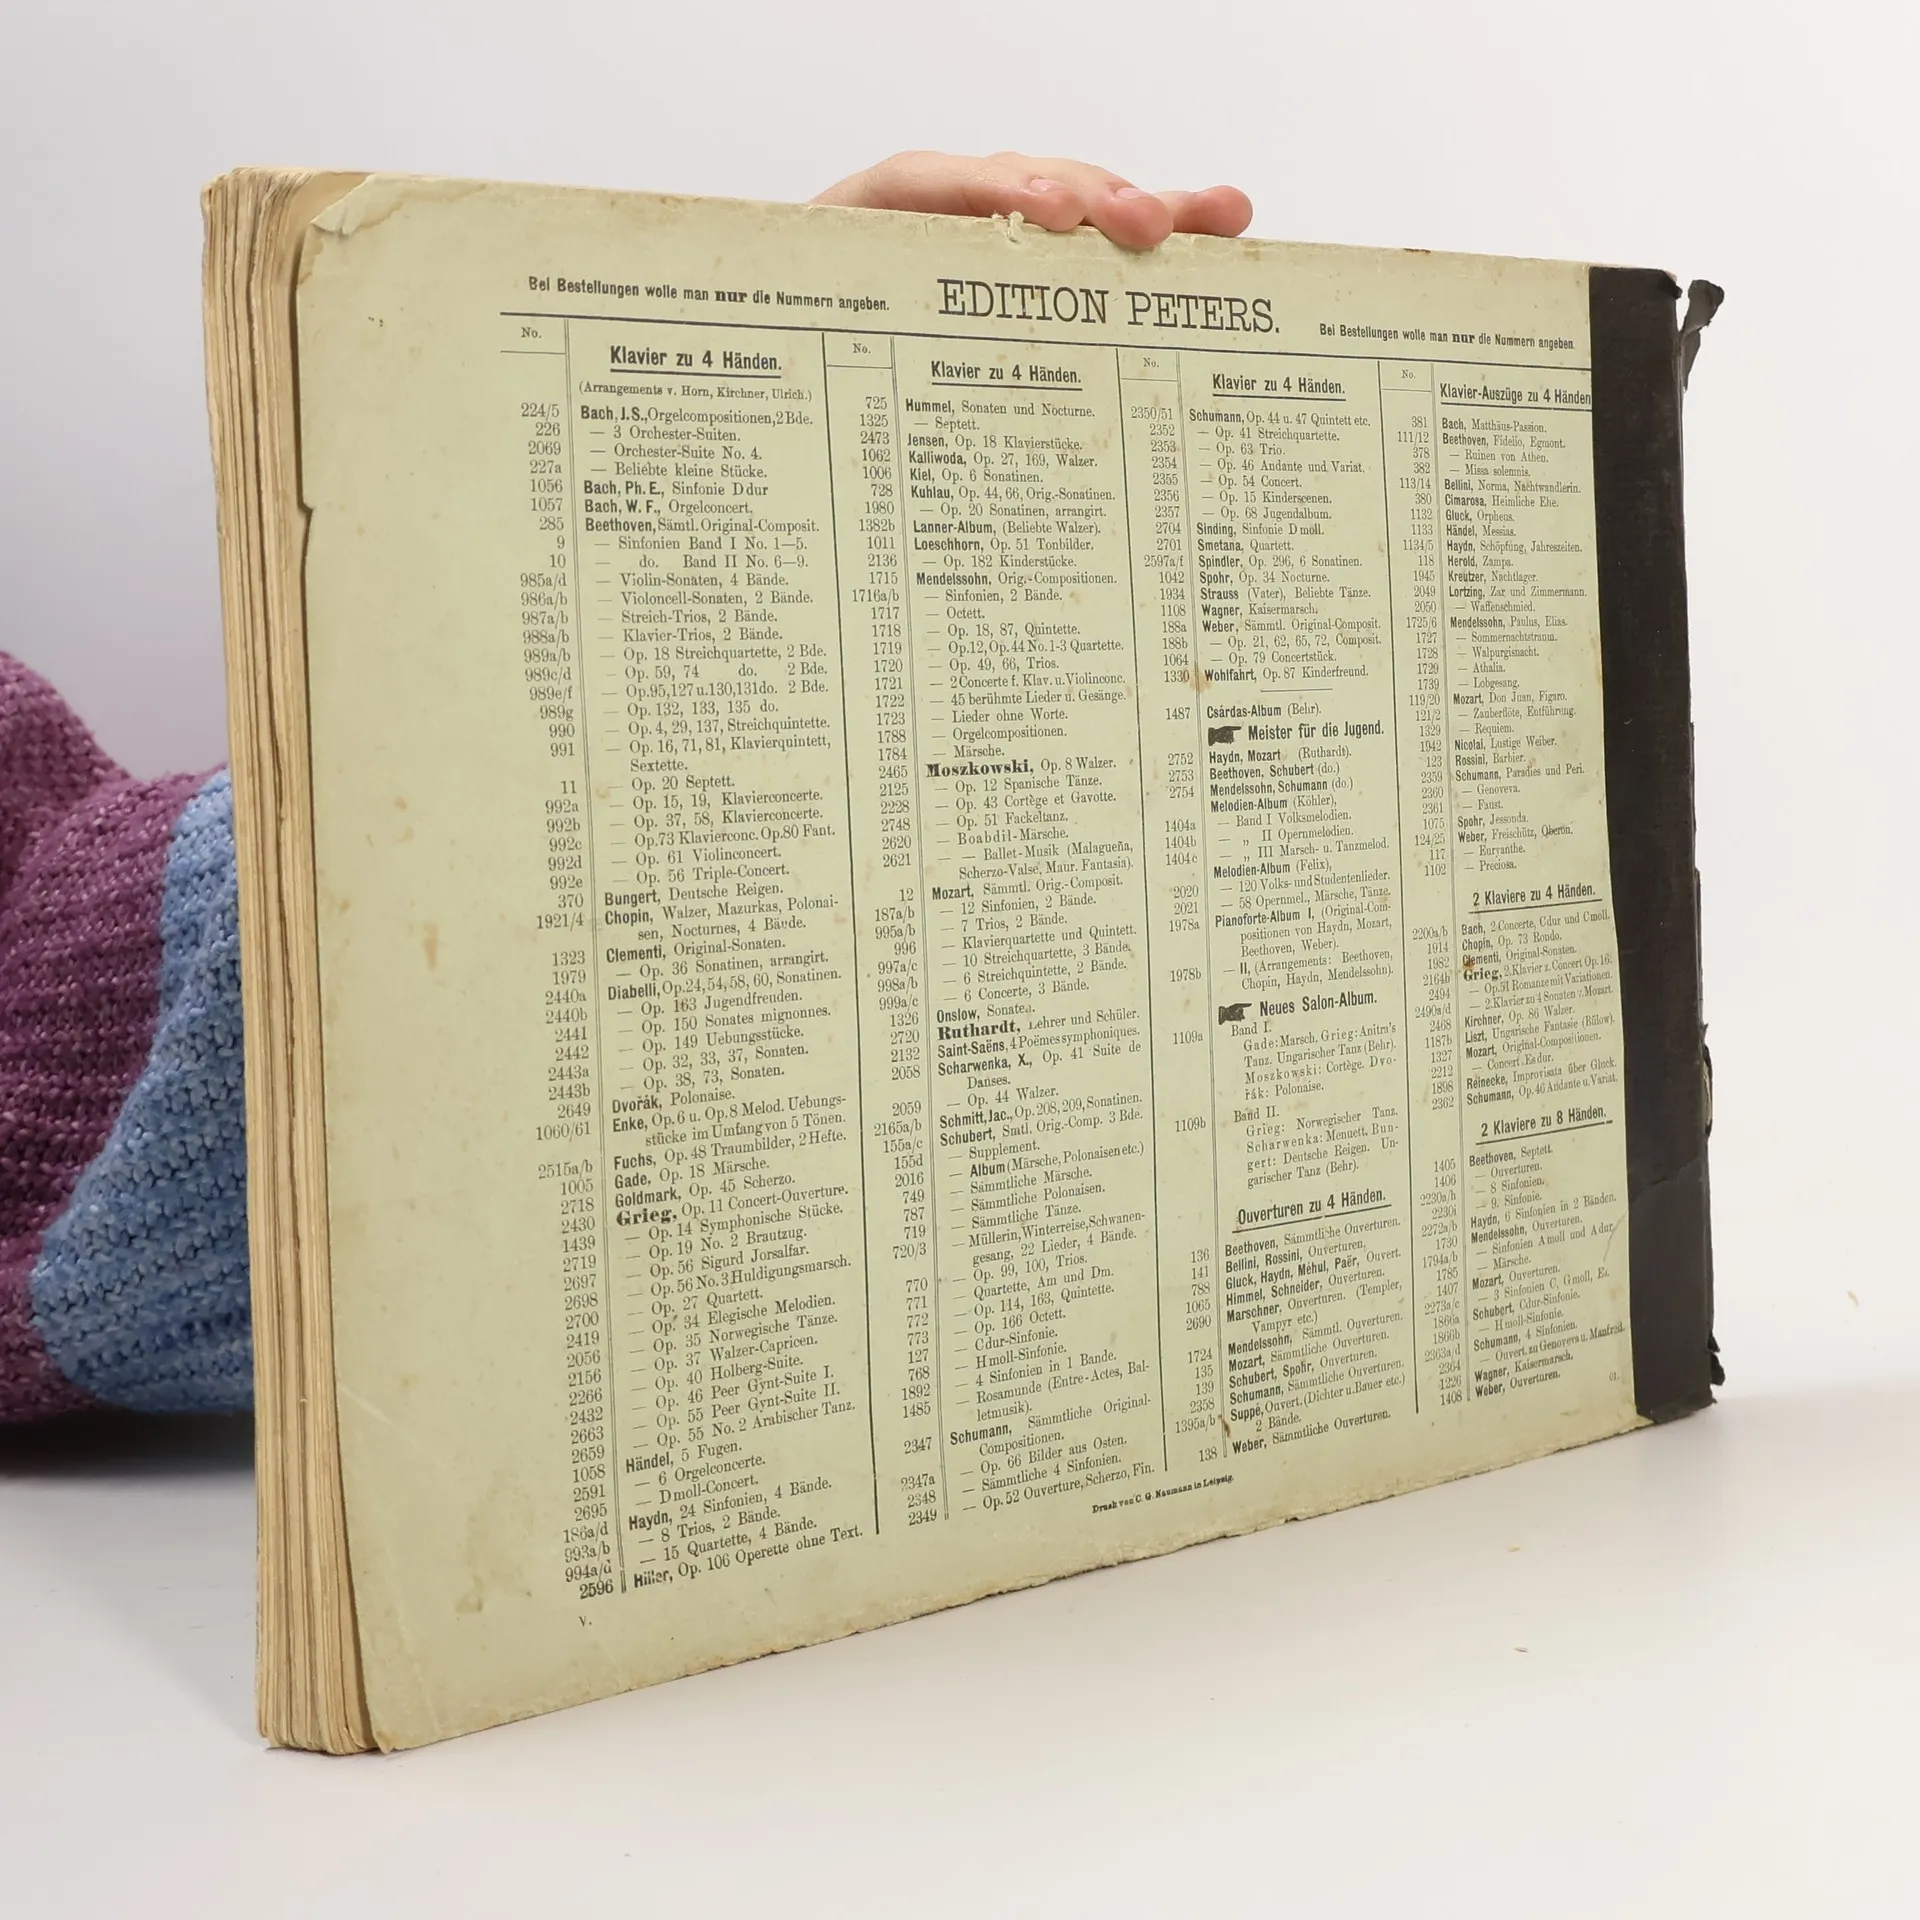 Bei Bestellungen wolle man nur die Nummern angeben.
EDITION PETERS.
Bei Bestellungen wolle man nur die Nummern angeben.
No.
Klavier zu 4 Händen.
(Arrangements v. Horn, Kirchner, Ulrich.)
224/5 Bach, J. S., Orgelcompositionen, 2 Bde.
226 — 3 Orchester-Suiten.
2069 — Orchester-Suite No. 4.
227a — Beliebte kleine Stücke.
1056 Bach, Ph. E., Sinfonie D dur
1057 Bach, W. F., Orgelconcert.
285 Beethoven, Sämtl. Original-Composit.
9 — Sinfonien Band I No. 1—5.
10 — do. Band II No. 6—9.
985a/d — Violin-Sonaten, 4 Bände.
986a/b — Violoncell-Sonaten, 2 Bände.
987a/b — Streich-Trios, 2 Bände.
988a/b — Klavier-Trios, 2 Bände.
989a/b — Op. 18 Streichquartette, 2 Bde.
989c/d — Op. 59, 74 do. 2 Bde.
989e/f — Op. 95, 127 u. 130, 131 do. 2 Bde.
989g — Op. 132, 133, 135 do.
990 — Op. 4, 29, 137, Streichquintette.
991 — Op. 16, 71, 81, Klavierquintett,
Sextette.
11 — Op. 20 Septett.
992a — Op. 15, 19, Klavierconcerte.
992b — Op. 37, 58, Klavierconcerte.
992c — Op. 73 Klavierconc. Op. 80 Fant.
992d — Op. 61 Violinconcert.
992e — Op. 56 Triple-Concert.
370 Bungert, Deutsche Reigen.
1921/4 Chopin, Walzer, Mazurkas, Polonai-
sen, Nocturnes, 4 Bände.
1323 Clementi, Original-Sonaten.
1979 — Op. 36 Sonatinen, arrangirt.
2440a Diabelli, Op. 24, 54, 58, 60, Sonatinen.
2440b — Op. 163 Jugendfreuden.
2441 — Op. 150 Sonates mignonnes.
2442 — Op. 149 Uebungsstücke.
2443a — Op. 32, 33, 37, Sonaten.
2443b — Op. 38, 73, Sonaten.
2649 Dvořák, Polonaise.
1060/61 Enke, Op. 6 u. Op. 8 Melod. Uebungs-
stücke im Umfang von 5 Tönen.
2515a/b Fuchs, Op. 48 Traumbilder, 2 Hefte.
1005 Gade, Op. 18 Märsche.
2718 Goldmark, Op. 45 Scherzo.
2430 Grieg, Op. 11 Concert-Ouverture.
1439 — Op. 14 Symphonische Stücke.
2719 — Op. 19 No. 2 Brautzug.
2697 — Op. 56 Sigurd Jorsalfar.
2698 — Op. 56 No. 3 Huldigungsmarsch.
2700 — Op. 27 Quartett.
2419 — Op. 34 Elegische Melodien.
2056 — Op. 35 Norwegische Tänze.
2156 — Op. 37 Walzer-Capricen.
2266 — Op. 40 Holberg-Suite.
2432 — Op. 46 Peer Gynt-Suite I.
2663 — Op. 55 Peer Gynt-Suite II.
2659 — Op. 55 No. 2 Arabischer Tanz.
1058 Händel, 5 Fugen.
2591 — 6 Orgelconcerte.
2695 — D moll-Concert.
186a/d Haydn, 24 Sinfonien, 4 Bände.
993a/b — 8 Trios, 2 Bände.
994a/d — 15 Quartette, 4 Bände.
2596 Hiller, Op. 106 Operette ohne Text.
V.
No.
Klavier zu 4 Händen.
725 Hummel, Sonaten und Nocturne.
1325 — Septett.
2473 Jensen, Op. 18 Klavierstücke.
1062 Kalliwoda, Op. 27, 169, Walzer.
1006 Kiel, Op. 6 Sonatinen.
728 Kuhlau, Op. 44, 66, Orig.-Sonatinen.
1980 — Op. 20 Sonatinen, arrangirt.
1382b Lanner-Album, (Beliebte Walzer).
1011 Loeschhorn, Op. 51 Tonbilder.
2136 — Op. 182 Kinderstücke.
1715 Mendelssohn, Orig.-Compositionen.
1716a/b — Sinfonien, 2 Bände.
1717 — Octett.
1718 — Op. 18, 87, Quintette.
1719 — Op. 12, Op. 44 No. 1-3 Quartette.
1720 — Op. 49, 66, Trios.
1721 — 2 Concerte f. Klav. u. Violinconc.
1722 — 45 berühmte Lieder u. Gesänge.
1723 — Lieder ohne Worte.
1788 — Orgelcompositionen.
1784 — Märsche.
2465 Moszkowski, Op. 8 Walzer.
2125 — Op. 12 Spanische Tänze.
2228 — Op. 43 Cortège et Gavotte.
2748 — Op. 51 Fackeltanz.
2620 — Boabdil-Märsche.
2621 — — Ballet-Musik (Malagueña,
Scherzo-Valse, Maur. Fantasia).
12 Mozart, Sämmtl. Orig.-Composit.
187a/b — 12 Sinfonien, 2 Bände.
995a/b — 7 Trios, 2 Bände.
996 — Klavierquartette und Quintett.
997a/c — 10 Streichquartette, 3 Bände.
998a/b — 6 Streichquintette, 2 Bände.
999a/c — 6 Concerte, 3 Bände.
1326 Onslow, Sonaten.
2720 Ruthardt, Lehrer und Schüler.
2132 Saint-Saëns, 4 Poëmes symphoniques.
2058 Scharwenka, X., Op. 41 Suite de
Danses.
2059 — Op. 44 Walzer.
2165a/b Schmitt, Jac., Op. 208, 209, Sonatinen.
155a/c Schubert, Smtl. Orig.-Comp. 3 Bde.
155d — Supplement.
2016 — Album (Märsche, Polonaisen etc.)
749 — Sämmtliche Märsche.
787 — Sämmtliche Polonaisen.
719 — Sämmtliche Tänze.
720/3 — Müllerin, Winterreise, Schwanen-
gesang, 22 Lieder, 4 Bände.
770 — Op. 99, 100, Trios.
771 — Quartette, Am und Dm.
772 — Op. 114, 163, Quintette.
773 — Op. 166 Octett.
127 — C dur-Sinfonie.
768 — H moll-Sinfonie.
1892 — 4 Sinfonien in 1 Bande.
1485 — Rosamunde (Entre-Actes, Bal-
letmusik).
2347 Schumann, Sämmtliche Original-
Compositionen.
2347a — Op. 66 Bilder aus Osten.
2348 — Sämmtliche 4 Sinfonien.
2349 — Op. 52 Ouverture, Scherzo, Fin.
No.
Klavier zu 4 Händen.
2350/51 Schumann, Op. 44 u. 47 Quintett etc.
2352 — Op. 41 Streichquartette.
2353 — Op. 63 Trio.
2354 — Op. 46 Andante und Variat.
2355 — Op. 54 Concert.
2356 — Op. 15 Kinderscenen.
2357 — Op. 68 Jugendalbum.
2704 Sinding, Sinfonie D moll.
2701 Smetana, Quartett.
2597a/f Spindler, Op. 296, 6 Sonatinen.
1042 Spohr, Op. 34 Nocturne.
1934 Strauss (Vater), Beliebte Tänze.
1108 Wagner, Kaisermarsch.
188a Weber, Sämmtl. Original-Composit.
188b — Op. 21, 62, 65, 72, Composit.
1064 — Op. 79 Concertstück.
1330 Wohlfahrt, Op. 87 Kinderfreund.
1487 Csárdas-Album (Behr).
Meister für die Jugend.
2752 Haydn, Mozart (Ruthardt).
2753 Beethoven, Schubert (do.)
2754 Mendelssohn, Schumann (do.)
Melodien-Album (Köhler),
1404a — Band I Volksmelodien.
1404b — „ II Opernmelodien.
1404c — „ III Marsch- u. Tanzmelod.
Melodien-Album (Felix),
2020 — 120 Volks- und Studentenlieder.
2021 — 58 Opernmel., Märsche, Tänze.
1978a Pianoforte-Album I, (Original-Com-
positionen von Haydn, Mozart,
Beethoven, Weber).
1978b — II, (Arrangements: Beethoven,
Chopin, Haydn, Mendelssohn).
Neues Salon-Album.
Band I.
1109a Gade: Marsch. Grieg: Anitra's
Tanz. Ungarischer Tanz (Behr).
Moszkowski: Cortège. Dvo-
řák: Polonaise.
Band II.
1109b Grieg: Norwegischer Tanz.
Scharwenka: Menuett. Bun-
gert: Deutsche Reigen. Un-
garischer Tanz (Behr).
Ouverturen zu 4 Händen.
136 Beethoven, Sämmtliche Ouverturen.
141 Bellini, Rossini, Ouverturen.
788 Gluck, Haydn, Méhul, Paër, Ouvert.
1065 Himmel, Schneider, Ouverturen.
2690 Marschner, Ouverturen. (Templer,
Vampyr etc.)
1724 Mendelssohn, Sämmtl. Ouverturen.
135 Mozart, Sämmtliche Ouverturen.
139 Schubert, Spohr, Ouverturen.
2358 Schumann, Sämmtliche Ouverturen.
1395a/b Suppé, Ouvert. (Dichter u. Bauer etc.)
2 Bände.
138 Weber, Sämmtliche Ouverturen.
No.
Klavier-Auszüge zu 4 Händen
381 Bach, Matthäus-Passion.
111/12 Beethoven, Fidelio, Egmont.
378 — Ruinen von Athen.
382 — Missa solemnis.
113/14 Bellini, Norma, Nachtwandlerin.
380 Cimarosa, Heimliche Ehe.
1132 Gluck, Orpheus.
1133 Händel, Messias.
1134/5 Haydn, Schöpfung, Jahreszeiten.
118 Herold, Zampa.
1945 Kreutzer, Nachtlager.
2049 Lortzing, Zar und Zimmermann.
2050 — Waffenschmied.
1725/6 Mendelssohn, Paulus, Elias.
1727 — Sommernachtstraum.
1728 — Walpurgisnacht.
1729 — Athalia.
1739 — Lobgesang.
119/20 Mozart, Don Juan, Figaro.
121/2 — Zauberflöte, Entführung.
1329 — Requiem.
1942 Nicolai, Lustige Weiber.
123 Rossini, Barbier.
2359 Schumann, Paradies und Peri.
2360 — Genoveva.
2361 — Faust.
1075 Spohr, Jessonda.
124/25 Weber, Freischütz, Oberon.
117 — Euryanthe.
1102 — Preciosa.
2 Klaviere zu 4 Händen.
2200a/b Bach, 2 Concerte, C dur und C moll.
1914 Chopin, Op. 73 Rondo.
1982 Clementi, Original-Sonaten.
2164b Grieg, 2. Klavier z. Concert Op. 16.
2494 — Op. 51 Romanze mit Variationen.
2490a/d — 2. Klavier zu 4 Sonaten v. Mozart.
2468 Kirchner, Op. 86 Walzer.
1187b Liszt, Ungarische Fantasie (Bülow).
1327 Mozart, Original-Compositionen.
2212 — Concert Es dur.
1898 Reinecke, Improvisata über Gluck.
2362 Schumann, Op. 46 Andante u. Variat.
2 Klaviere zu 8 Händen.
1405 Beethoven, Septett.
1406 — Ouverturen.
2230a/h — 8 Sinfonien.
2230i — 9. Sinfonie.
2272a/b Haydn, 6 Sinfonien in 2 Bänden.
1730 Mendelssohn, Ouverturen.
1794a/b — Sinfonien A moll und A dur.
1785 — Märsche.
1407 Mozart, Ouverturen.
2273a/c — 3 Sinfonien C, G moll, Es.
1866a Schubert, C dur-Sinfonie.
1866b — H moll-Sinfonie.
2363a/d Schumann, 4 Sinfonien.
2364 — Ouvert. zu Genoveva u. Manfred.
1226 Wagner, Kaisermarsch.
1408 Weber, Ouverturen.
Druck von C. G. Naumann in Leipzig.